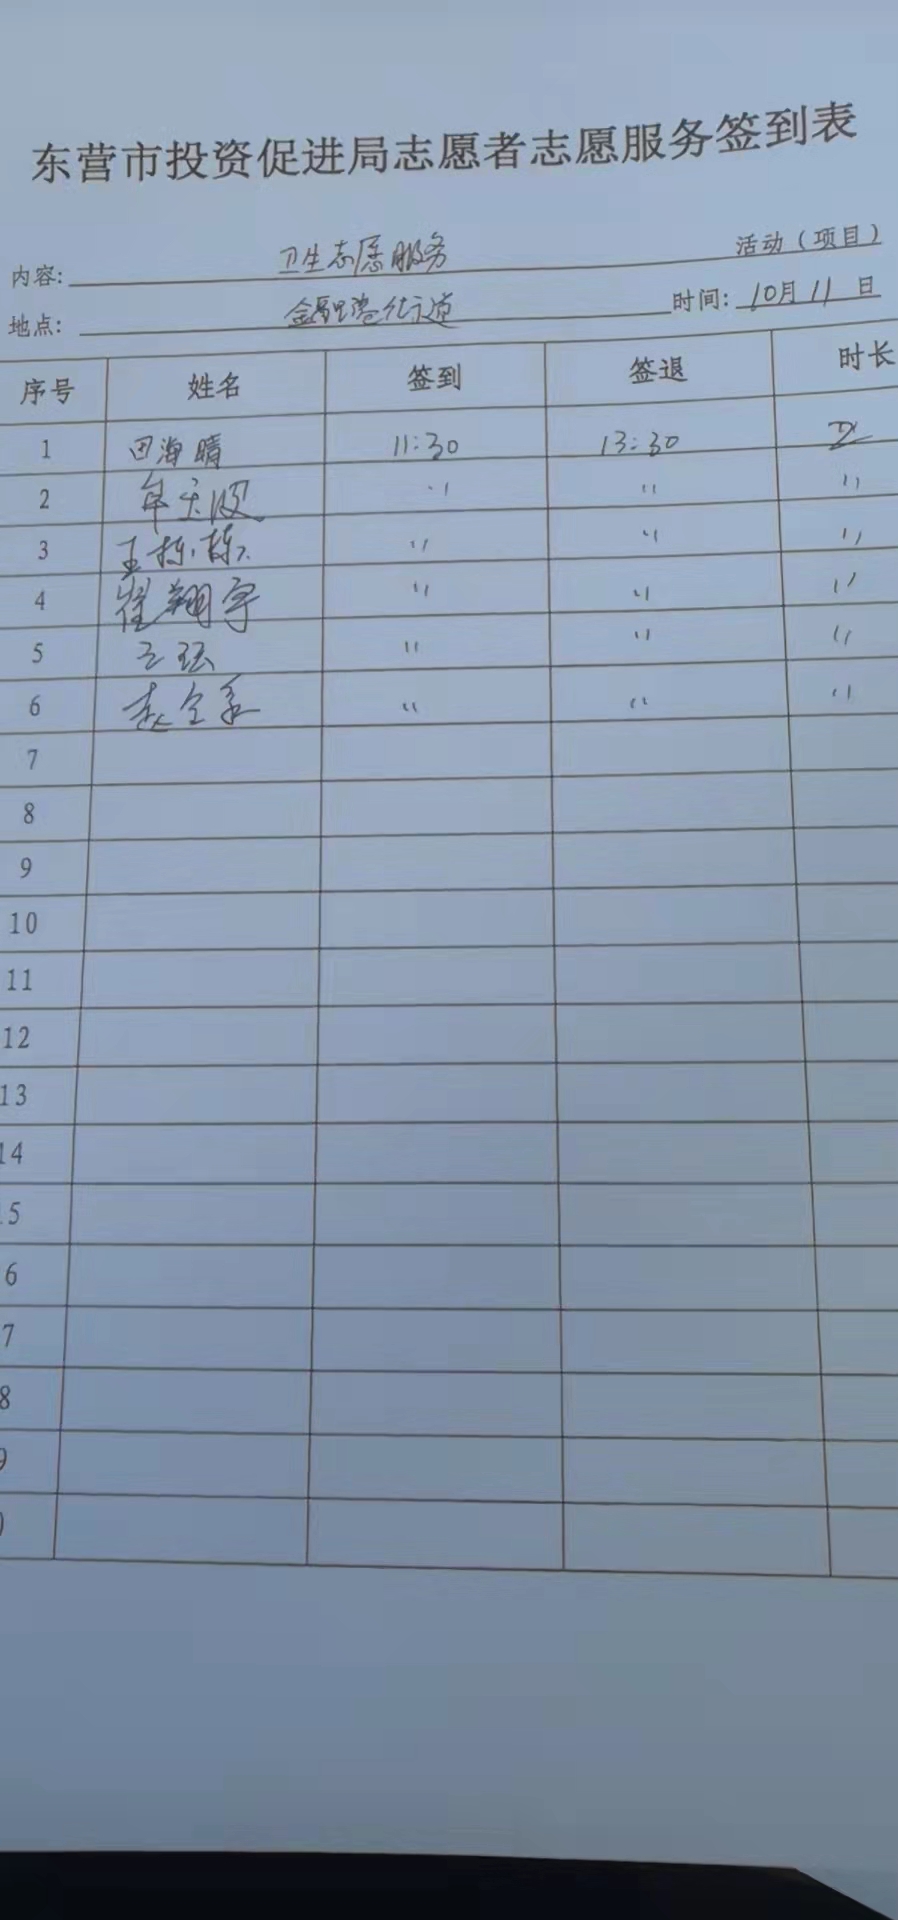 东营市投资促进局志愿者志愿服务签到表
内容: 卫生志愿服务 活动（项目）
地点: 街道 时间: 10月11日
序号 姓名 签到 签退 时长
1 田海晴 11:30 13:30 2
2 牟 〃 〃 〃
3 王栋栋 〃 〃 〃
4 崔翔宇 〃 〃 〃
5 王 〃 〃 〃
6 赵全 〃 〃 〃
7
8
9
10
11
12
13
14
5
6
7
8
9